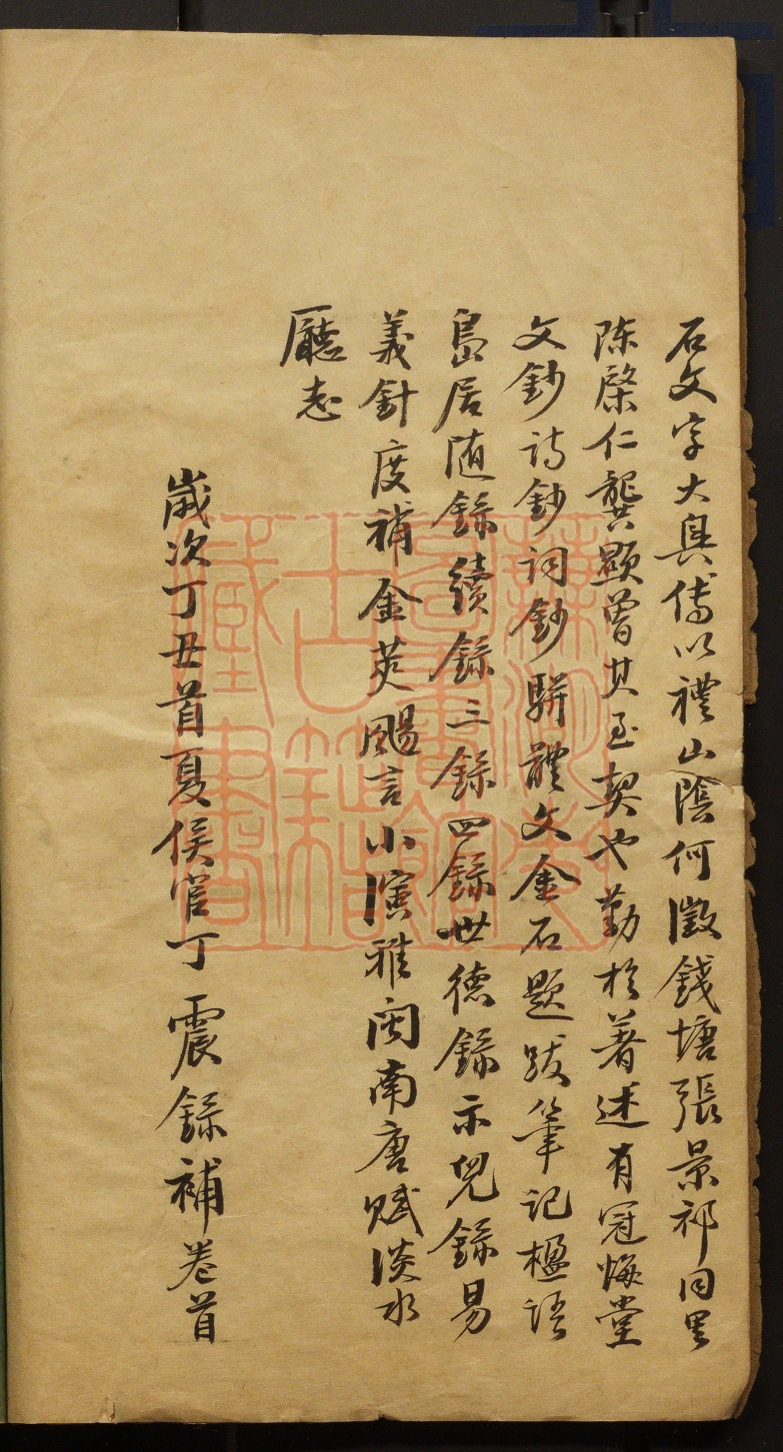 石文字大興傅以禮山陰何澂錢塘張景祁同里
陳棨仁龔顯曾其至契也勤於著述有冠悔堂
文鈔詩鈔詞鈔駢體文金石題跋筆記楹語
島居随錄續錄三錄四錄世德錄示兒錄易
義針度補金莢颺言小演雅閩南唐賦淡水
廳志
歲次丁丑首夏侯官丁震錄補卷首
圖書館
古籍
藏書